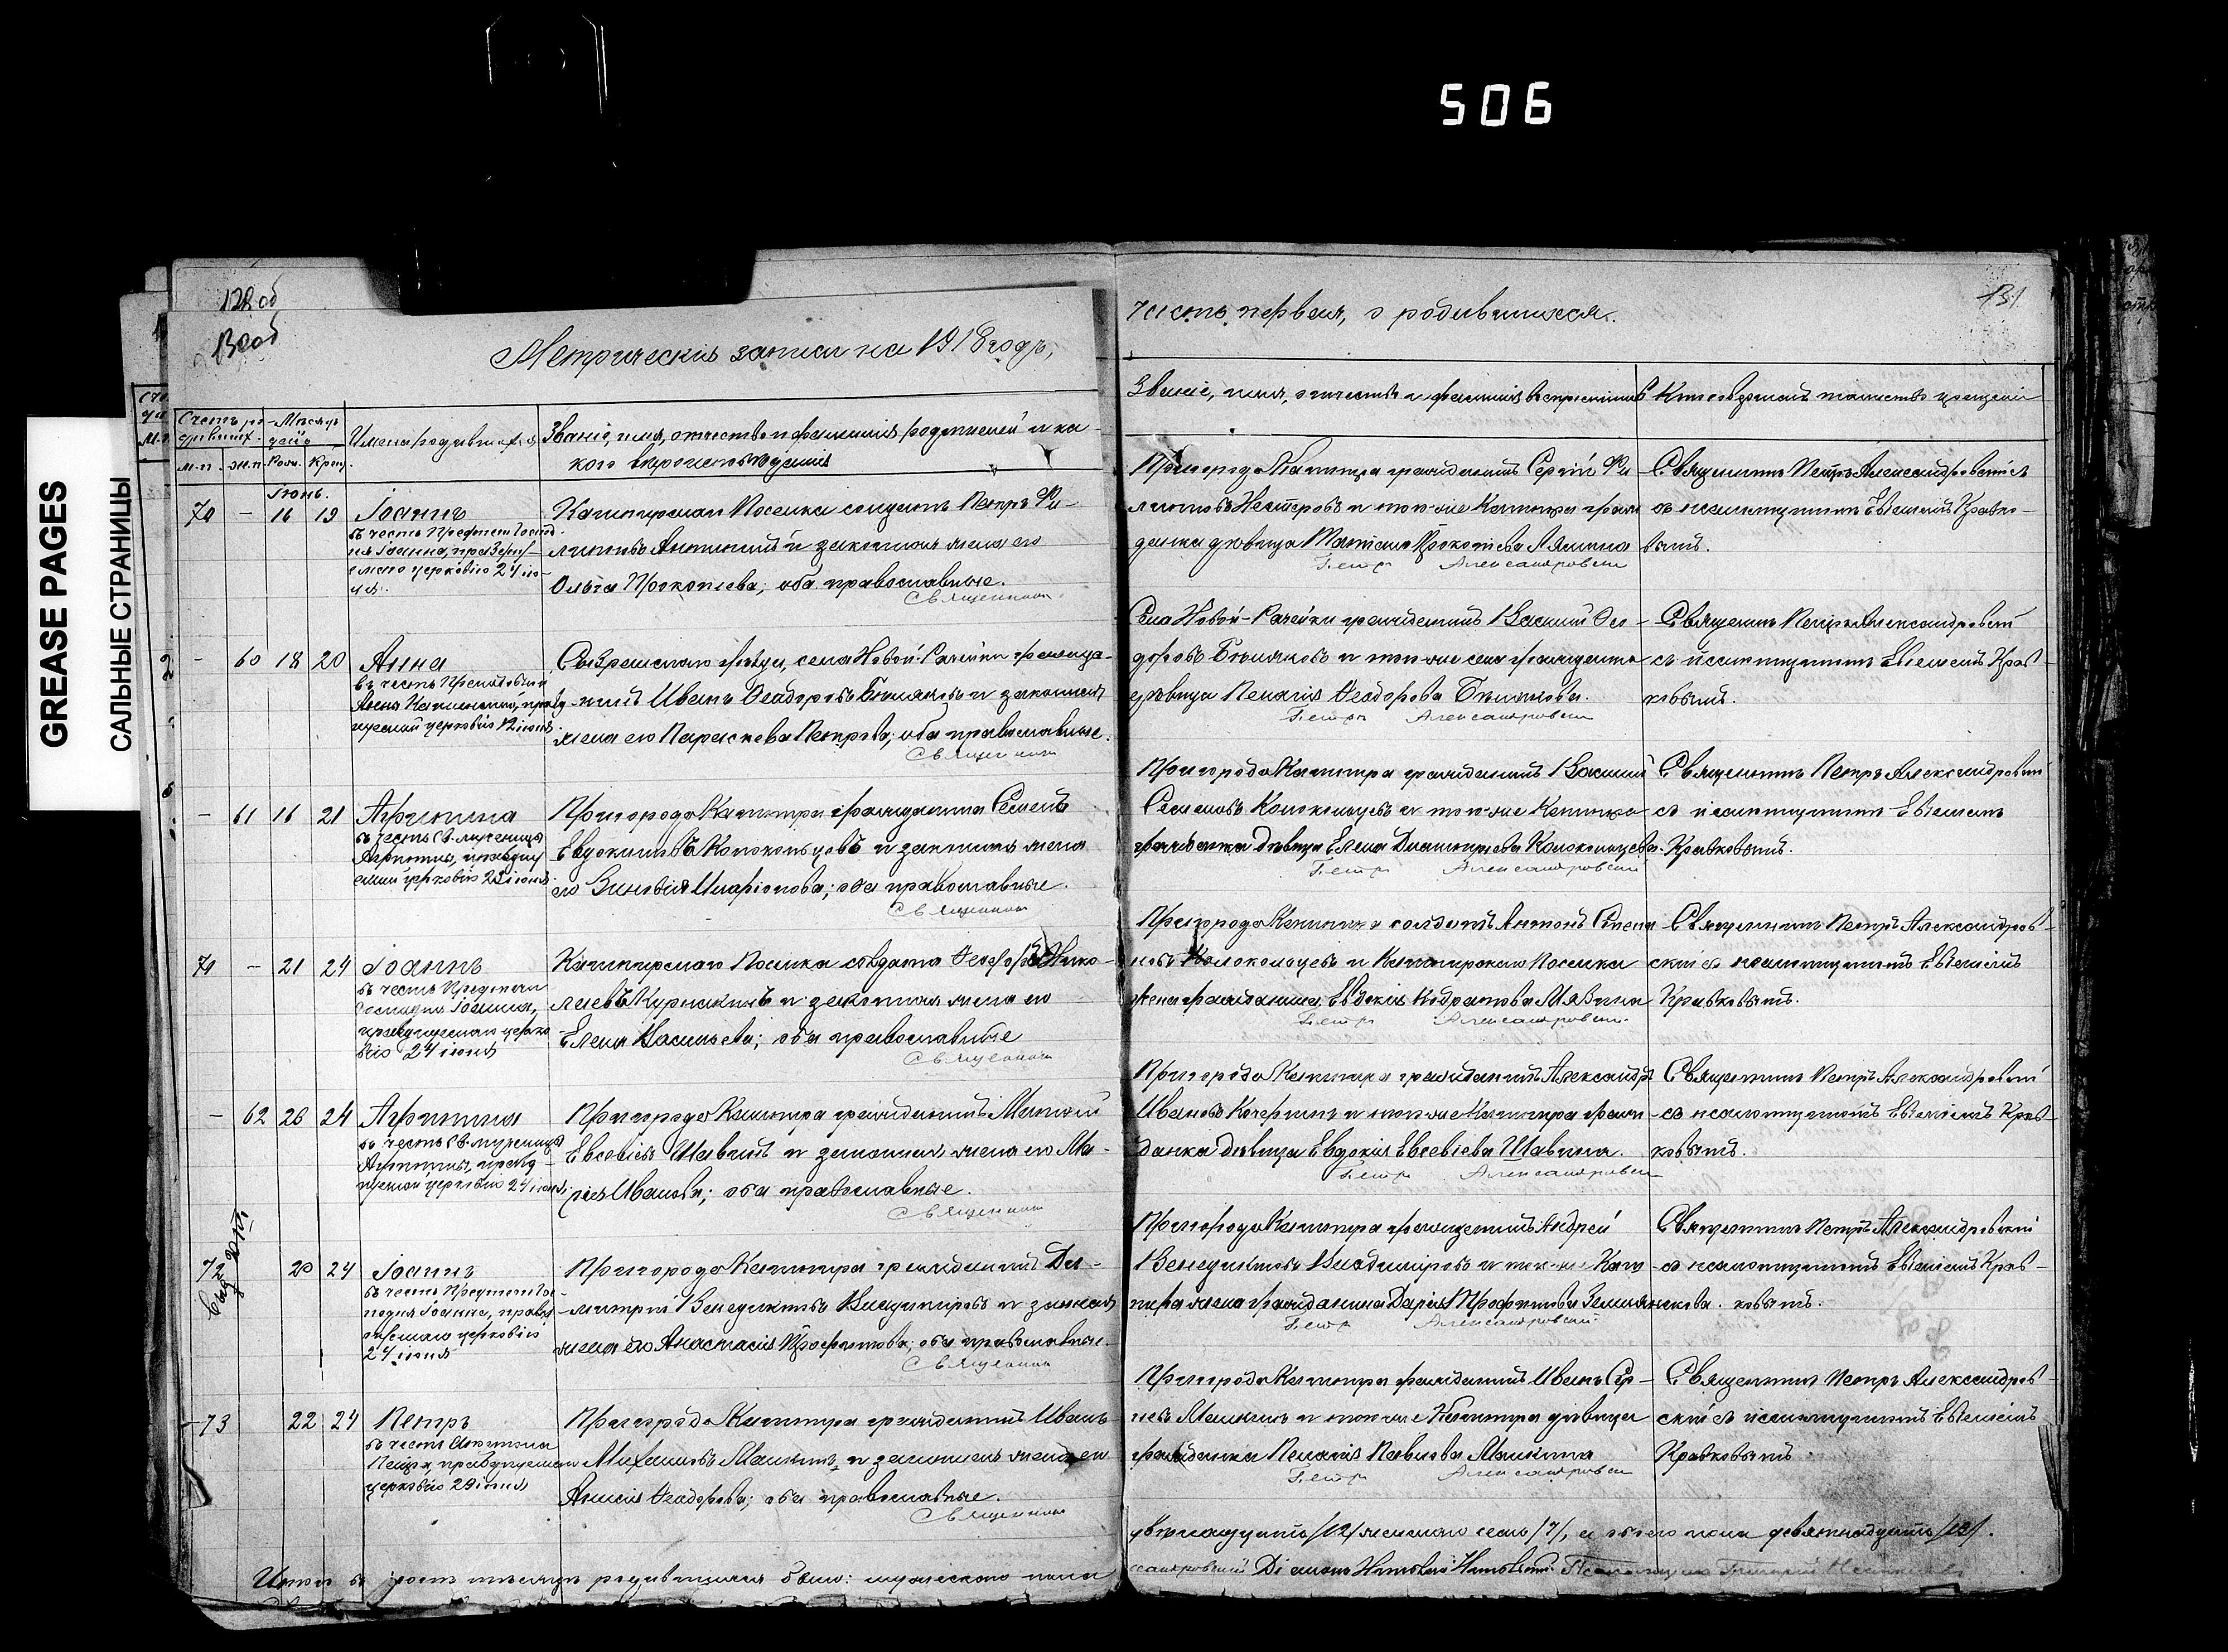 506
GREASE PAGES
САЛЬНЫЕ СТРАНИЦЫ
128 об
130 об
131
Метрическія записи на 1918 годъ,
часть первая, о родившихся.
Счетъ ро-
дившихся
Мѣсяцъ
м.п. ж.п. Рожд. Крещ.
Имена родившихся
Званіе, имя, отчество и фамилія родителей и ка-
кого вѣроисповѣданія
Званіе, имя, отчество и фамилія воспріемниковъ
Кто совершалъ таинство крещенія
Іюнь.
70 - 16 19 Іоаннъ
въ честь Предтечи Господ-
ня Іоанна, празднуемаго церковію 24 ію-
ня.
Кашпирскаго Поселка солдатъ Петръ Фи-
липповъ и законная жена его
Ольга Прокопіева; оба православные.
Священникъ
Пригорода Кашпира гражданинъ Сергій Фи-
липповъ Нестеровъ и того-же Кашпира граж-
данка дѣвица Прокопіева Лямина
Петръ Александровскій
Священникъ Петръ Александровскій
съ псаломщикомъ Евгеніемъ Кравко-
вымъ.
- 60 18 20 Анна
въ честь Преподобной
Анны празд-
нуемой церковію 12 іюня.
Сызранскаго уѣзда, села Новой-Рачейки гражда-
нинъ Иванъ Ѳеодоровъ Бѣляковъ и законная
жена его Параскева Петрова; оба православные.
Священникъ
Села Новой-Рачейки гражданинъ Василій Ѳео-
доровъ Бѣляковъ и того-же села гражданка
дѣвица Пелагія Ѳеодорова Бѣлякова.
Петръ Александровскій
Священникъ Петръ Александровскій
съ псаломщикомъ Евгеніемъ Крав-
ковымъ.
- 61 16 21 Агрипина
въ честь Св. мученицы
Агрипины, празднуемой церковію 23 іюня.
Пригорода Кашпира гражданина Семенъ
Евдокимовъ Колокольцовъ и законная жена
его Зиновія Иларіонова; оба православные.
Священникъ
Пригорода Кашпира гражданинъ Василій
Семеновъ Колокольцевъ и того-же Кашпира
гражданка дѣвица Елена Димитріева Колокольцева.
Петръ Александровскій
Священникъ Петръ Александровскій
съ псаломщикомъ Евгеніемъ
Кравковымъ.
71 - 21 24 Іоаннъ
въ честь Предтечи
Господня Іоанна,
празднуемаго церко-
вію 24 іюня
Кашпирскаго Поселка солдата Ѳеодоръ Нико-
лаевъ и законная жена его
Елена Васильева; оба православные
Священникъ
Пригорода Кашпира солдатъ Антонъ Степа-
новъ Колокольцевъ и Кашпирскаго Поселка
жена гражданина Евдокія Кодратова
Петръ Александровскій
Священникъ Петръ Александров-
скій съ псаломщикомъ Евгеніемъ
Кравковымъ.
- 62 20 24 Агрипина
въ честь Св. мученицы
Агрипины, празд-
нуемой церковію 24 іюня.
Пригорода Кашпира гражданинъ
Евсевіевъ Шавинъ и законная жена его Ма-
рія Иванова; оба православные.
Священникъ
Пригорода Кашпира гражданинъ Александръ
Ивановъ Кочергинъ и того-же Кашпира граж-
данка дѣвица Евдокія Евсевіева Шавина.
Петръ Александровскій
Священникъ Петръ Александровскій
съ псаломщикомъ Евгеніемъ Крав-
ковымъ.
72 20 24 Іоаннъ
въ честь Предтечи Гос-
подня Іоанна, праздн-
уемаго церковію
24 іюня
Пригорода Кашпира гражданинъ Ди-
митрій Венедиктовъ Владиміровъ и законная
жена его Анастасія Трофимова; оба православные.
Священникъ
Пригорода Кашпира гражданинъ Андрей
Венедиктовъ Владиміровъ и того-же Каш-
пира жена гражданина Дарія Трофимова Землянскова.
Петръ Александровскій
Священникъ Петръ Александровскій
съ псаломщикомъ Евгеніемъ Крав-
ковымъ.
73 22 24 Петръ
въ честь Апостола
Петра, празднуемаго
церковію 29 іюня
Пригорода Кашпира гражданинъ Иванъ
Михайловъ Машкинъ и законная жена его
Анисія Ѳеодорова; оба православные.
Священникъ
Пригорода Кашпира гражданинъ Иванъ Сер-
геевъ Машкинъ и того-же Кашпира дѣвица
гражданка Пелагія Павлова Машкина
Петръ Александровскій
Священникъ Петръ Александров-
скій съ псаломщикомъ Евгеніемъ
Кравковымъ
Итого въ мѣсяцѣ родившихся было: мужескаго пола
двѣнадцать /12/ женскаго семь /7/, а обоего пола девятнадцать /19/.
Діаконъ